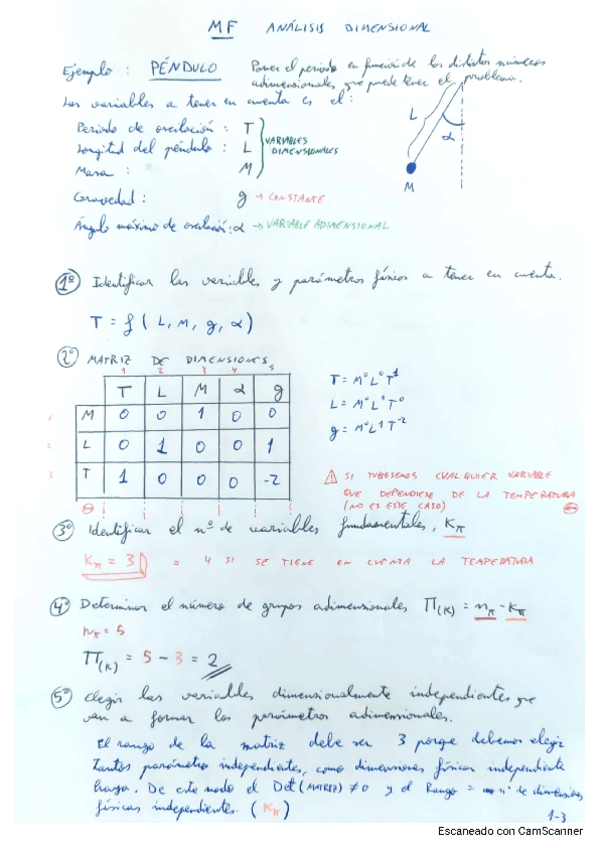 MF ANÁLISIS DIMENSIONAL
Ejemplo : PÉNDULO Poner el periodo en función de los distintos números
adimensionales que puede tener el problema.
Las variables a tener en cuenta es el :
Periodo de oscilación : T
Longitud del péndulo : L
Masa : M
VARIABLES
DIMENSIONALES
Gravedad : g → CONSTANTE
Ángulo máximo de oscilación : α → VARIABLE ADIMENSIONAL
L
α
M
1º Identificar las variables y parámetros físicos a tener en cuenta.
T = f ( L, M, g, α )
2º MATRIZ DE DIMENSIONES
1 2 3 4 5
T L M α g
1 M 0 0 1 0 0
2 L 0 1 0 0 1
3 T 1 0 0 0 -2
T = M⁰L⁰T¹
L = M⁰L¹T⁰
g = M⁰L¹T⁻²
⚠ SI TUBESEMOS CUALQUIER VARIABLE
QUE DEPENDIESE DE LA TEMPERATURA
(NO ES ESTE CASO)
3º Identificar el nº de variables fundamentales, Kπ
Kπ = 3 o 4 SI SE TIENE EN CUENTA LA TEMPERATURA
4º Determinar el número de grupos adimensionales Π(K) = nπ - Kπ
nπ = 5
Π(K) = 5 - 3 = 2
5º Elegir las variables dimensionalmente independientes que
van a formar los parámetros adimensionales.
El rango de la matriz debe ser 3 porqe debemos elegir
tantos parámetro independientes, como dimensiones físicas independiente
haya. De este modo el Det(MATRIZ) ≠ 0 y el Rango = nº de dimensiones
físicas independientes. (Kπ)
1-3
Escaneado con CamScanner